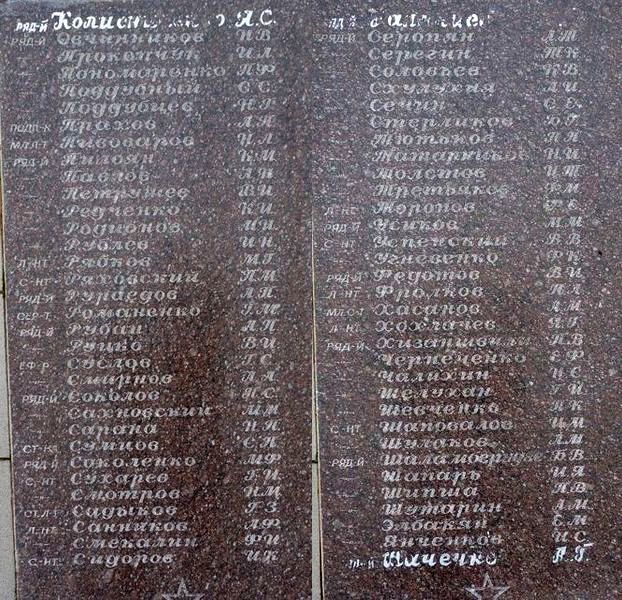 РЯД-Й Колисниченко А.С.
РЯД-Й Овчинников И.В.
Прокопчук И.Л.
Пономоренко П.Ф.
Поддубный С.С.
Поддубцев Н.Г.
ПОДП-К Прахов А.П.
МЛ.Л-Т Пивоваров И.Л.
РЯД-Й Пилоян К.М.
Павлов А.Н.
Петрушев В.И.
Редченко К.И.
Родионов М.И.
Рублев И.Н.
Л-НТ Рябков М.Г.
С-НТ Ряховский П.М.
РЯД-Й Рурдедов А.П.
СЕР-Т Романенко Г.М.
РЯД-Й Рубан А.П.
Руцко В.И.
ЕФ-Р Суслов Г.С.
Смирнов П.А.
РЯД-Й Соколов П.С.
Сахновский М.М.
Сарана И.П.
СТ-НА Сумцов С.П.
РЯД-Й Соколенко М.Ф.
С-НТ Сухарев Г.И.
Смотров И.М.
СТ.Л-Т Садыков Г.З.
Л-НТ Санников Л.Ф.
Смекалин Ф.И.
С-НТ Сидоров И.К.
РЯД-Й Серопян А.М.
Серегин Т.К.
Соловьев К.В.
Схулухия А.И.
Сечин С.Е.
Стерликов В.Г.
Тютьков П.П.
Татарников Н.И.
Толстов И.Т.
Третьяков Ф.М.
Л-НТ Торопов Г.Е.
РЯД-Й Усиков М.М.
С-НТ Успенский В.В.
Угневенко Ф.К.
РЯД-Й Федотов В.И.
Л-НТ Фролков П.А.
МЛ.С-Т Хасанов А.М.
Л-НТ Хохлачев Я.Г.
РЯД-Й Хизанишвили П.В.
Черпеченко Е.Ф.
Чалихин И.С.
Шелухан Г.И.
Шевченко П.К.
С-НТ Шаповалов И.М.
Шулаков А.М.
РЯД-Й Б.В.
Шапарь И.Я.
Шипша П.В.
Шутарин А.М.
Элбакян Е.М.
Янченков И.С.
Шачечко П.Г.